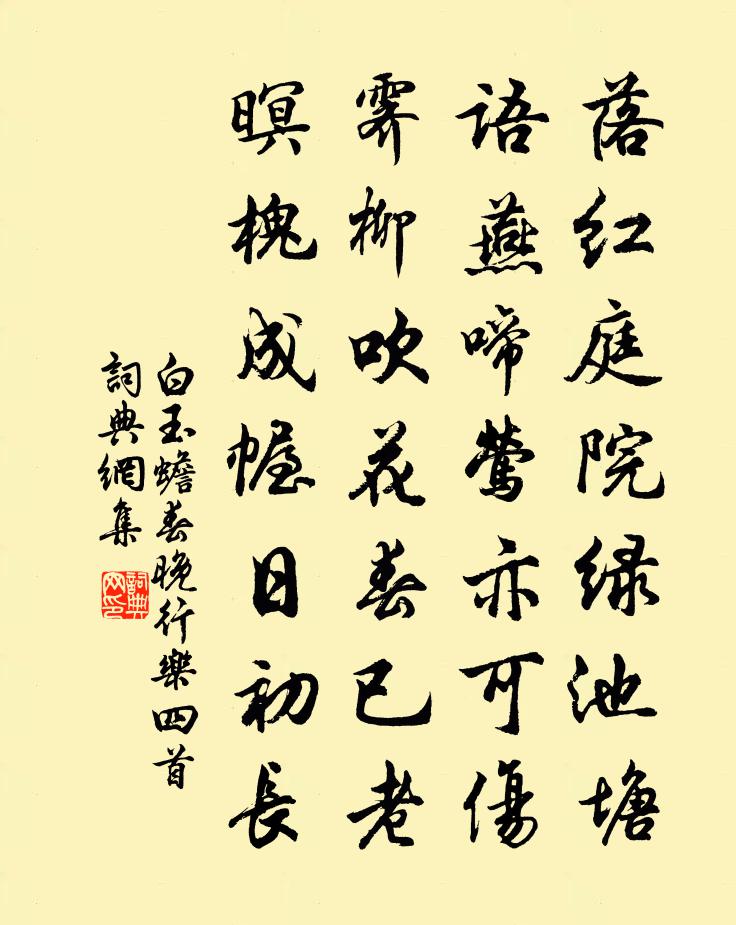 落红庭院绿池塘
语燕啼莺亦可傷
霁柳吹花春已老
暝槐成幄日初長
白玉蟾春晚行樂四首
詞典網集
詞典网印